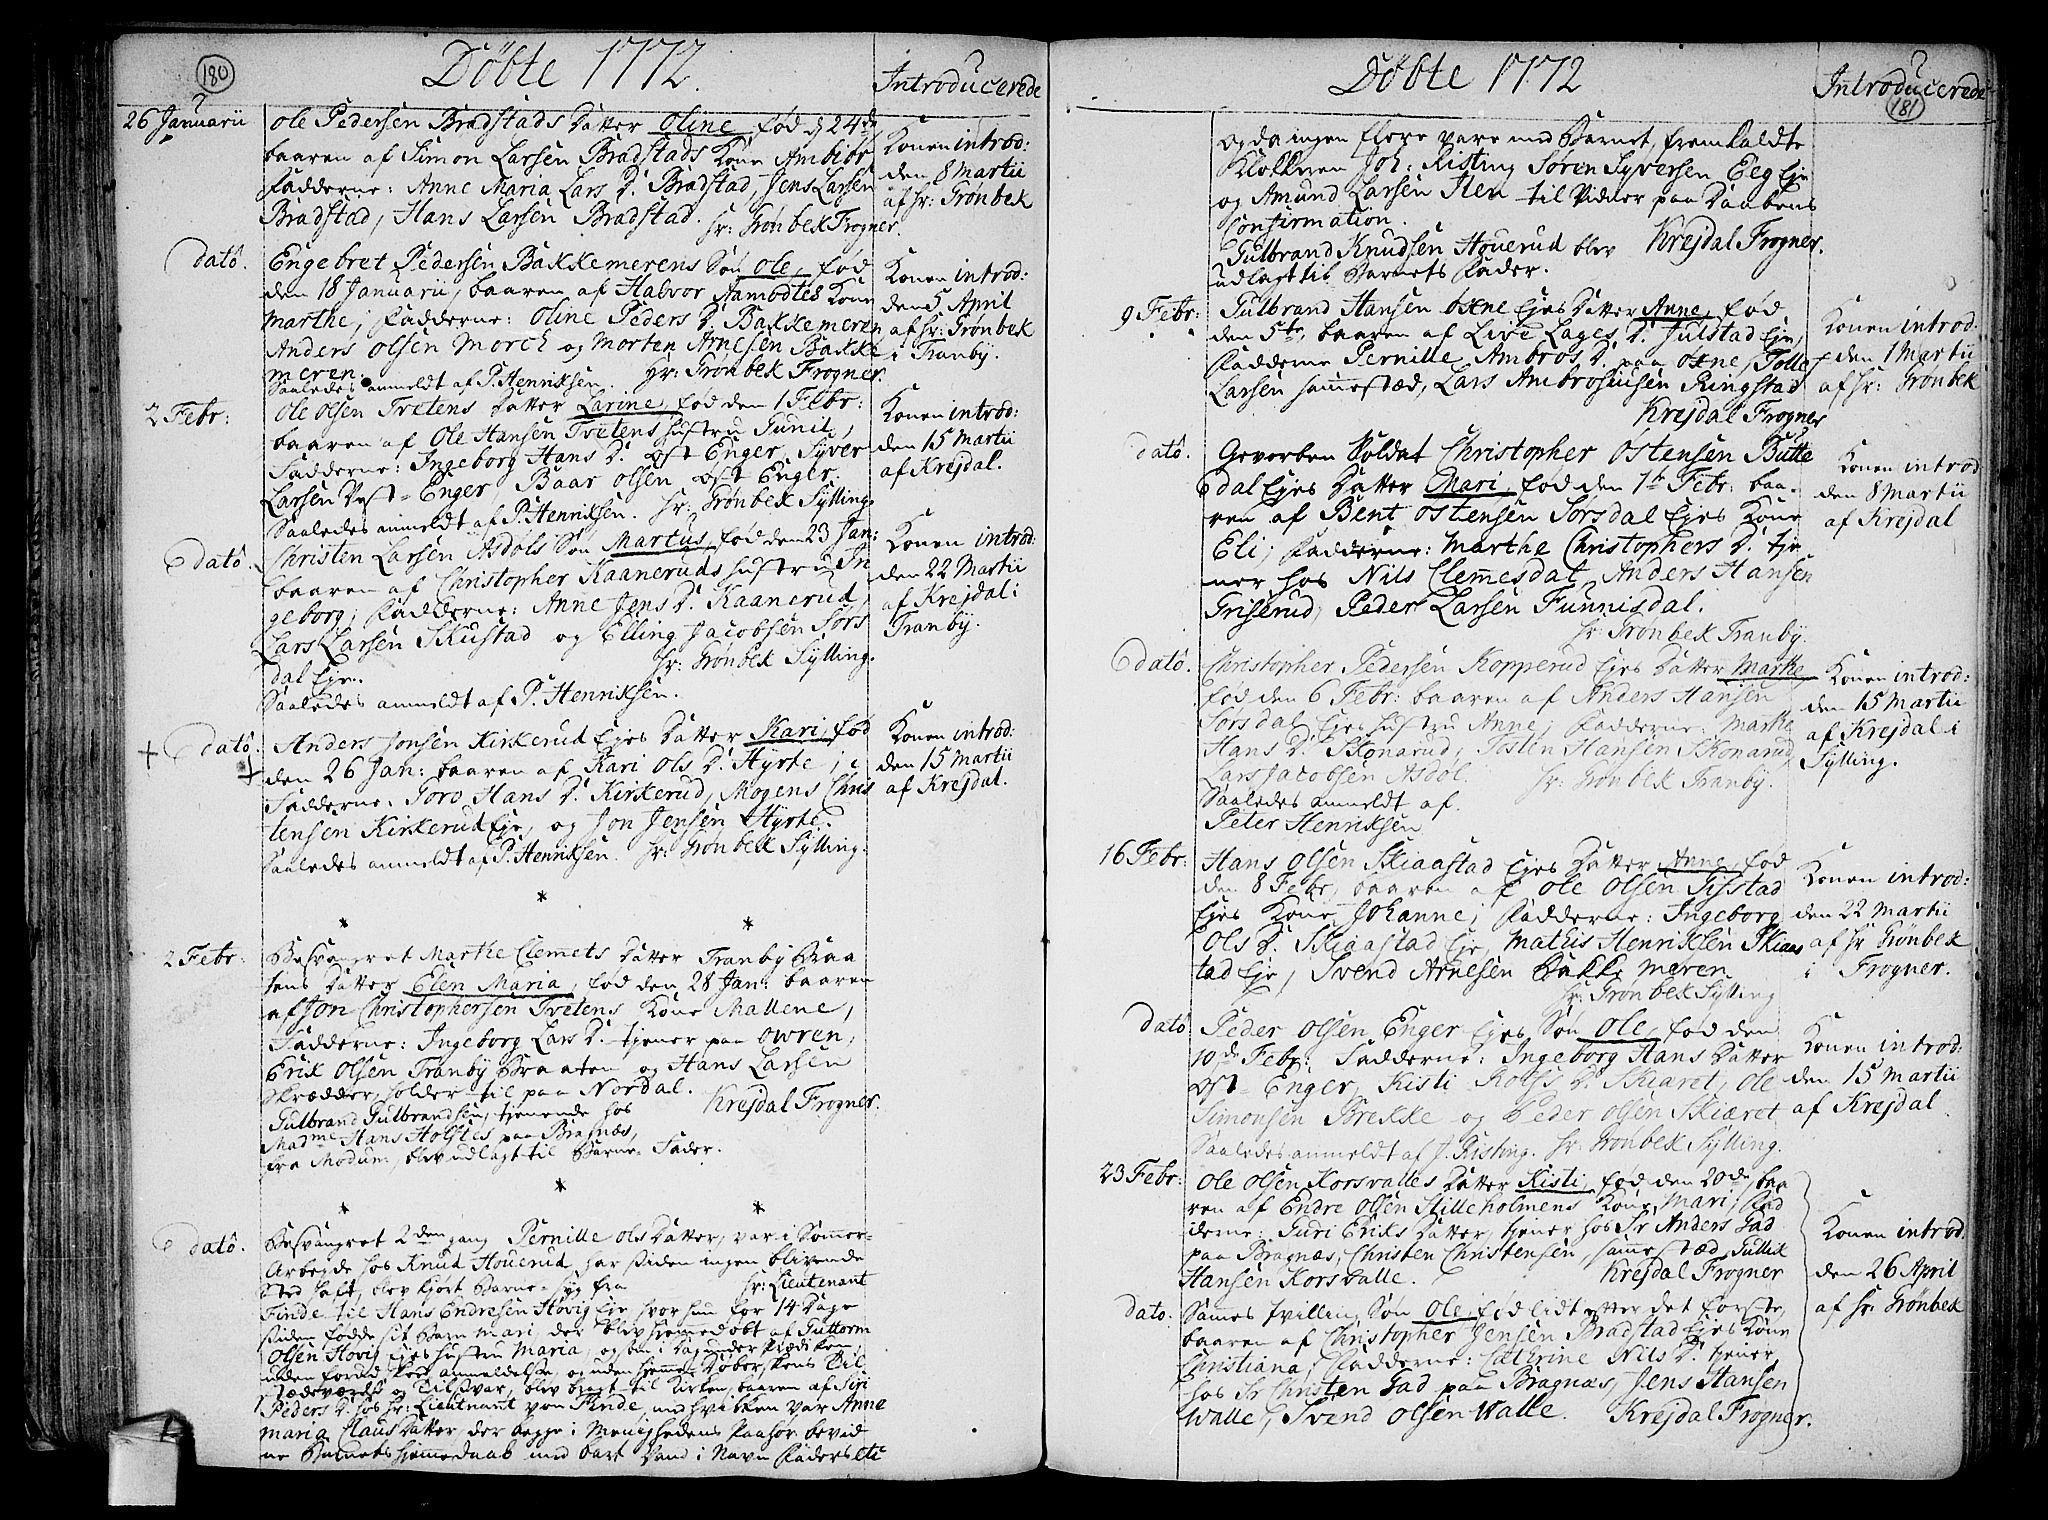 180
Döbte 1772.
Introducerede
26 Januarii
Ole Pedersen Bradstads Datter Oline, fød d 24de
baaren af Simon Larsen Bradstads Kone Ambiör
Fadderne: Anne Maria Lars D. Bradstad, Jens Larsen
Bradstad, Hans Larsen Bradstad. Hr: Grønbek Frogner.
Konen introd:
den 8 Martii
af Hr: Grønbek
dato.
Engebret Pedersen Bakkemerens Søn Ole, fød
den 18 Januarii, baaren af Halvor Aamodtes Kone
Marthe; Fadderne: Oline Peders D. Bakkemeren
Anders Olsen Morch og Morten Arnesen Bakke
meren.
Saaledes anmeldt af P. Henriksen. Hr: Grønbek Frogner.
Konen introd:
den 5 April
af Hr: Grønbek
i Tranby.
2 Febr:
Ole Olsen Tvetens Datter Larine, fød den 1 Febr:
baaren af Ole Hansen Tvetens Hustru Gunil,
Fadderne: Ingeborg Hans D. Øst Enger, Syver
Larsen Vest-Enger, Baar Olsen Øst Enger.
Saaledes anmeldt af P. Henriksen. Hr: Grønbek Sylling.
Konen introd:
den 15 Martii
af Krejdal.
dato.
Christen Larsen Asdøls Søn Martus, fød den 23 Jan:
baaren af Christopher Kaaneruds Hustru In
geborg; Fadderne: Anne Jens D. Kaanerud,
Lars Larsen Skustad og Elling Jacobsen Sørs
dal Eje.
Hr: Grønbek Sylling.
Saaledes anmeldt af P. Henriksen.
Konen introd:
den 22 Martii
af Krejdal i
Tranby.
+ dato.
+
Anders Jonsen Kirkerud Ejes Datter Kari, fød
den 26 Jan: baaren af Kari Ols D. Hyrte;
Fadderne: Goro Hans D. Kirkerud, Mogens Chris
tensen Kirkerud Eje, og Jon Jensen Hyrte.
Saaledes anmeldt af P. Henriksen. Hr: Grønbek Sylling.
Konen introd:
den 15 Martii
af Krejdal.
* * *
2 Febr:
Besvangret Marthe Clemmets Datter Tranby Braa
tens Datter Elen Maria, fød den 28 Jan: baaren
af Jon Christophersen Tvetens Kone Mallene;
Fadderne: Ingeborg Lars D. tjener paa Owren,
Erik Olsen Tranby Braaten og Hans Larsen
Skrædder, holder til paa Nordal.
Krejdal Frogner.
Gulbrand Gulbrandsen, tjenende hos
Madme Hans Holstes paa Bragnæs,
fra Modum, blev udlagt til Barne-Fader.
* * *
dato.
Besvangret 2den gang Pernille Ols Datter, var i Sommer-
Arbejde hos Knud Houerud, har siden ingen blivende
Sted haft, blev kjørt Barne-syg fra Hr: Lieutenant
Finde til Hans Endresen Hovig Eje hvor hun for 14 Dage
siden fødde sit Barn Mari, der blev hjemmedøbt af Guttorm
Olsen Hovig Ejes Hustru Maria, og
uden foregaaende anmeldelse, og uden hjemme-Døberskens Til
stædeværelse og Tilsvar, blev bragt til Kirken, baaren af Siri
Peders D. hos Hr: Lieutnant von Finde, med hvilken var Anne
Maria Claus Datter, der begge i Menighedens Paahør bevid
ne Barnets Hjemmedaab med bart Vand i Navn Faders etc
181
Döbte 1772
Introducerede
og da ingen flere vare med Barnet, fremkaldte
Klokkeren Joh: Risting Sören Syversen Eeg Eje
og Amund Larsen Iten til Vidner paa Daabens
Confirmation.
Krejdal Frogner.
Gulbrand Knudsen Houerud blev
udlagt til Barnets Fader.
9 Febr:
Gulbrand Hansen Oxne Ejes Datter Anne, fød
den 5te, baaren af Live Lages D. Julstad Eje,
Fadderne Pernille Ambros D. paa Oxne, Tolle
Larsen sammested, Lars Ambrosiusen Ringstad
Krejdal Frogner
Konen introd.
den 1 Martii
af Hr: Grønbek
dato.
Gevorben Soldat Christopher Ostensen Butte
dal Ejes Datter Mari, fød den 1te Febr: baa-
ren af Bent Ostensen Sørsdal Ejes Kone
Eli; Fadderne: Marthe Christophers D. tje
ner hos Nils Clemmesdal, Anders Hansen
Griserud, Peder Larsen Funnisdal.
Hr: Grønbek Tranby.
Konen introd
den 8 Martii
af Krejdal
dato.
Christopher Pedersen Kopperud Ejes Datter Marthe,
fød den 6 Febr: baaren af Anders Hansen
Sørsdal Ejes Hustru Anne; Fadderne: Marthe
Hans D. Skonarud, Tosten Hansen Skonarud,
Lars Jacobsen Asdøl. Hr: Grønbek Tranby.
Saaledes anmeldt af
Peter Henriksen
Konen introd:
den 15 Martii
af Krejdal i
Sylling.
16 Febr:
Hans Olsen Skiaastad Ejes Datter Anne, fød
den 8 Febr, baaren af Ole Olsen Gisstad
Ejes Kone Johanne; Fadderne: Ingeborg
Ols D. Skiaastad Eje, Mathis Henriksen Skiaas
tad Eje, Svend Arnesen Bakkemeren
Hr: Grønbek Sylling
Konen introd:
den 22 Martii
af Hr Grønbek
i Frogner.
dato
Peder Olsen Enger Ejes Søn Ole, fød den
10de Febr: Fadderne: Ingeborg Hans Datter
Øst Enger, Kisti Rolfs D. Skiaret, Ole
Simonsen Brekke og Peder Olsen Skiæret
Saaledes anmeldt af J. Risting. Hr: Grønbek Sylling.
Konen introd:
den 15 Martii
af Krejdal.
23 Febr:
Ole Olsen Korsvalles Datter Kisti, fød den 20de, baa
ren af Endre Olsen Stilleholmens Kone Mari, Fad
derne: Guri Eriks Datter, tjener hos Sr Anders Gad
paa Bragnæs, Christen Christensen, sammested, Gullik
Hansen Korsvalle. Krejdal Frogner
Konen introd.
den 26 April
af Hr: Grønbek
dato.
Sammes tvilling Søn Ole, fød lidt efter det første,
baaren af Christopher Jensen Bradstad Ejes Kone
Christiana; Fadderne: Cathrine Nils D. tjener
hos Sr Christen Gad paa Bragnæs, Jens Hansen
Walle, Svend Olsen Walle. Krejdal Frogner.